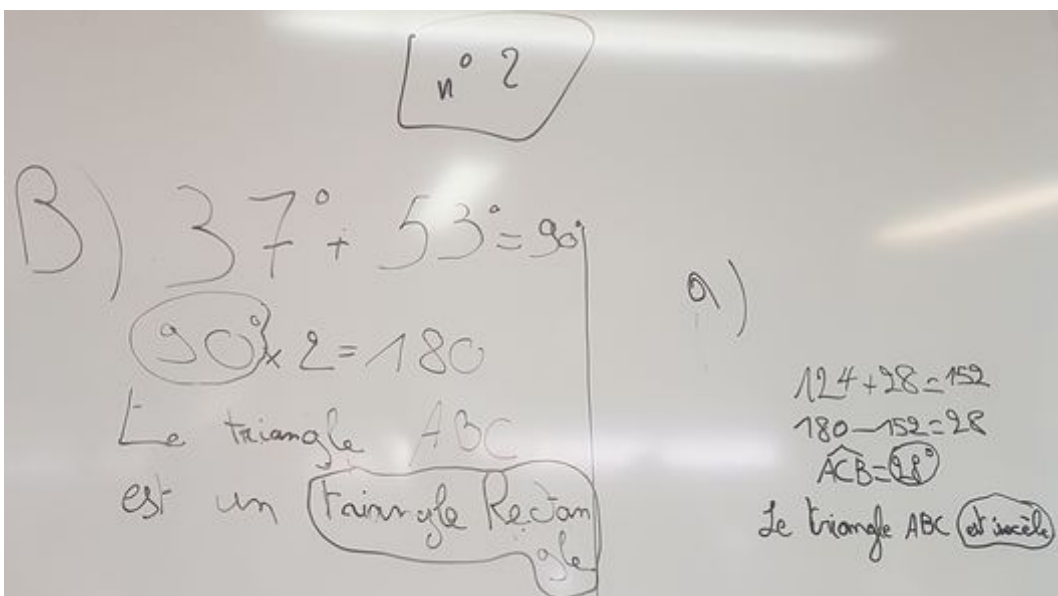 n° 2
B) 37° + 53° = 90°
90° x 2 = 180
Le triangle ABC
est un trainngle Rectan
gle
a)
124 + 28 = 152
180 - 152 = 28
ACB = 28°
Le triangle ABC est isocèle